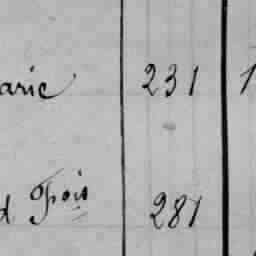 arie 231 1
d Pois 281